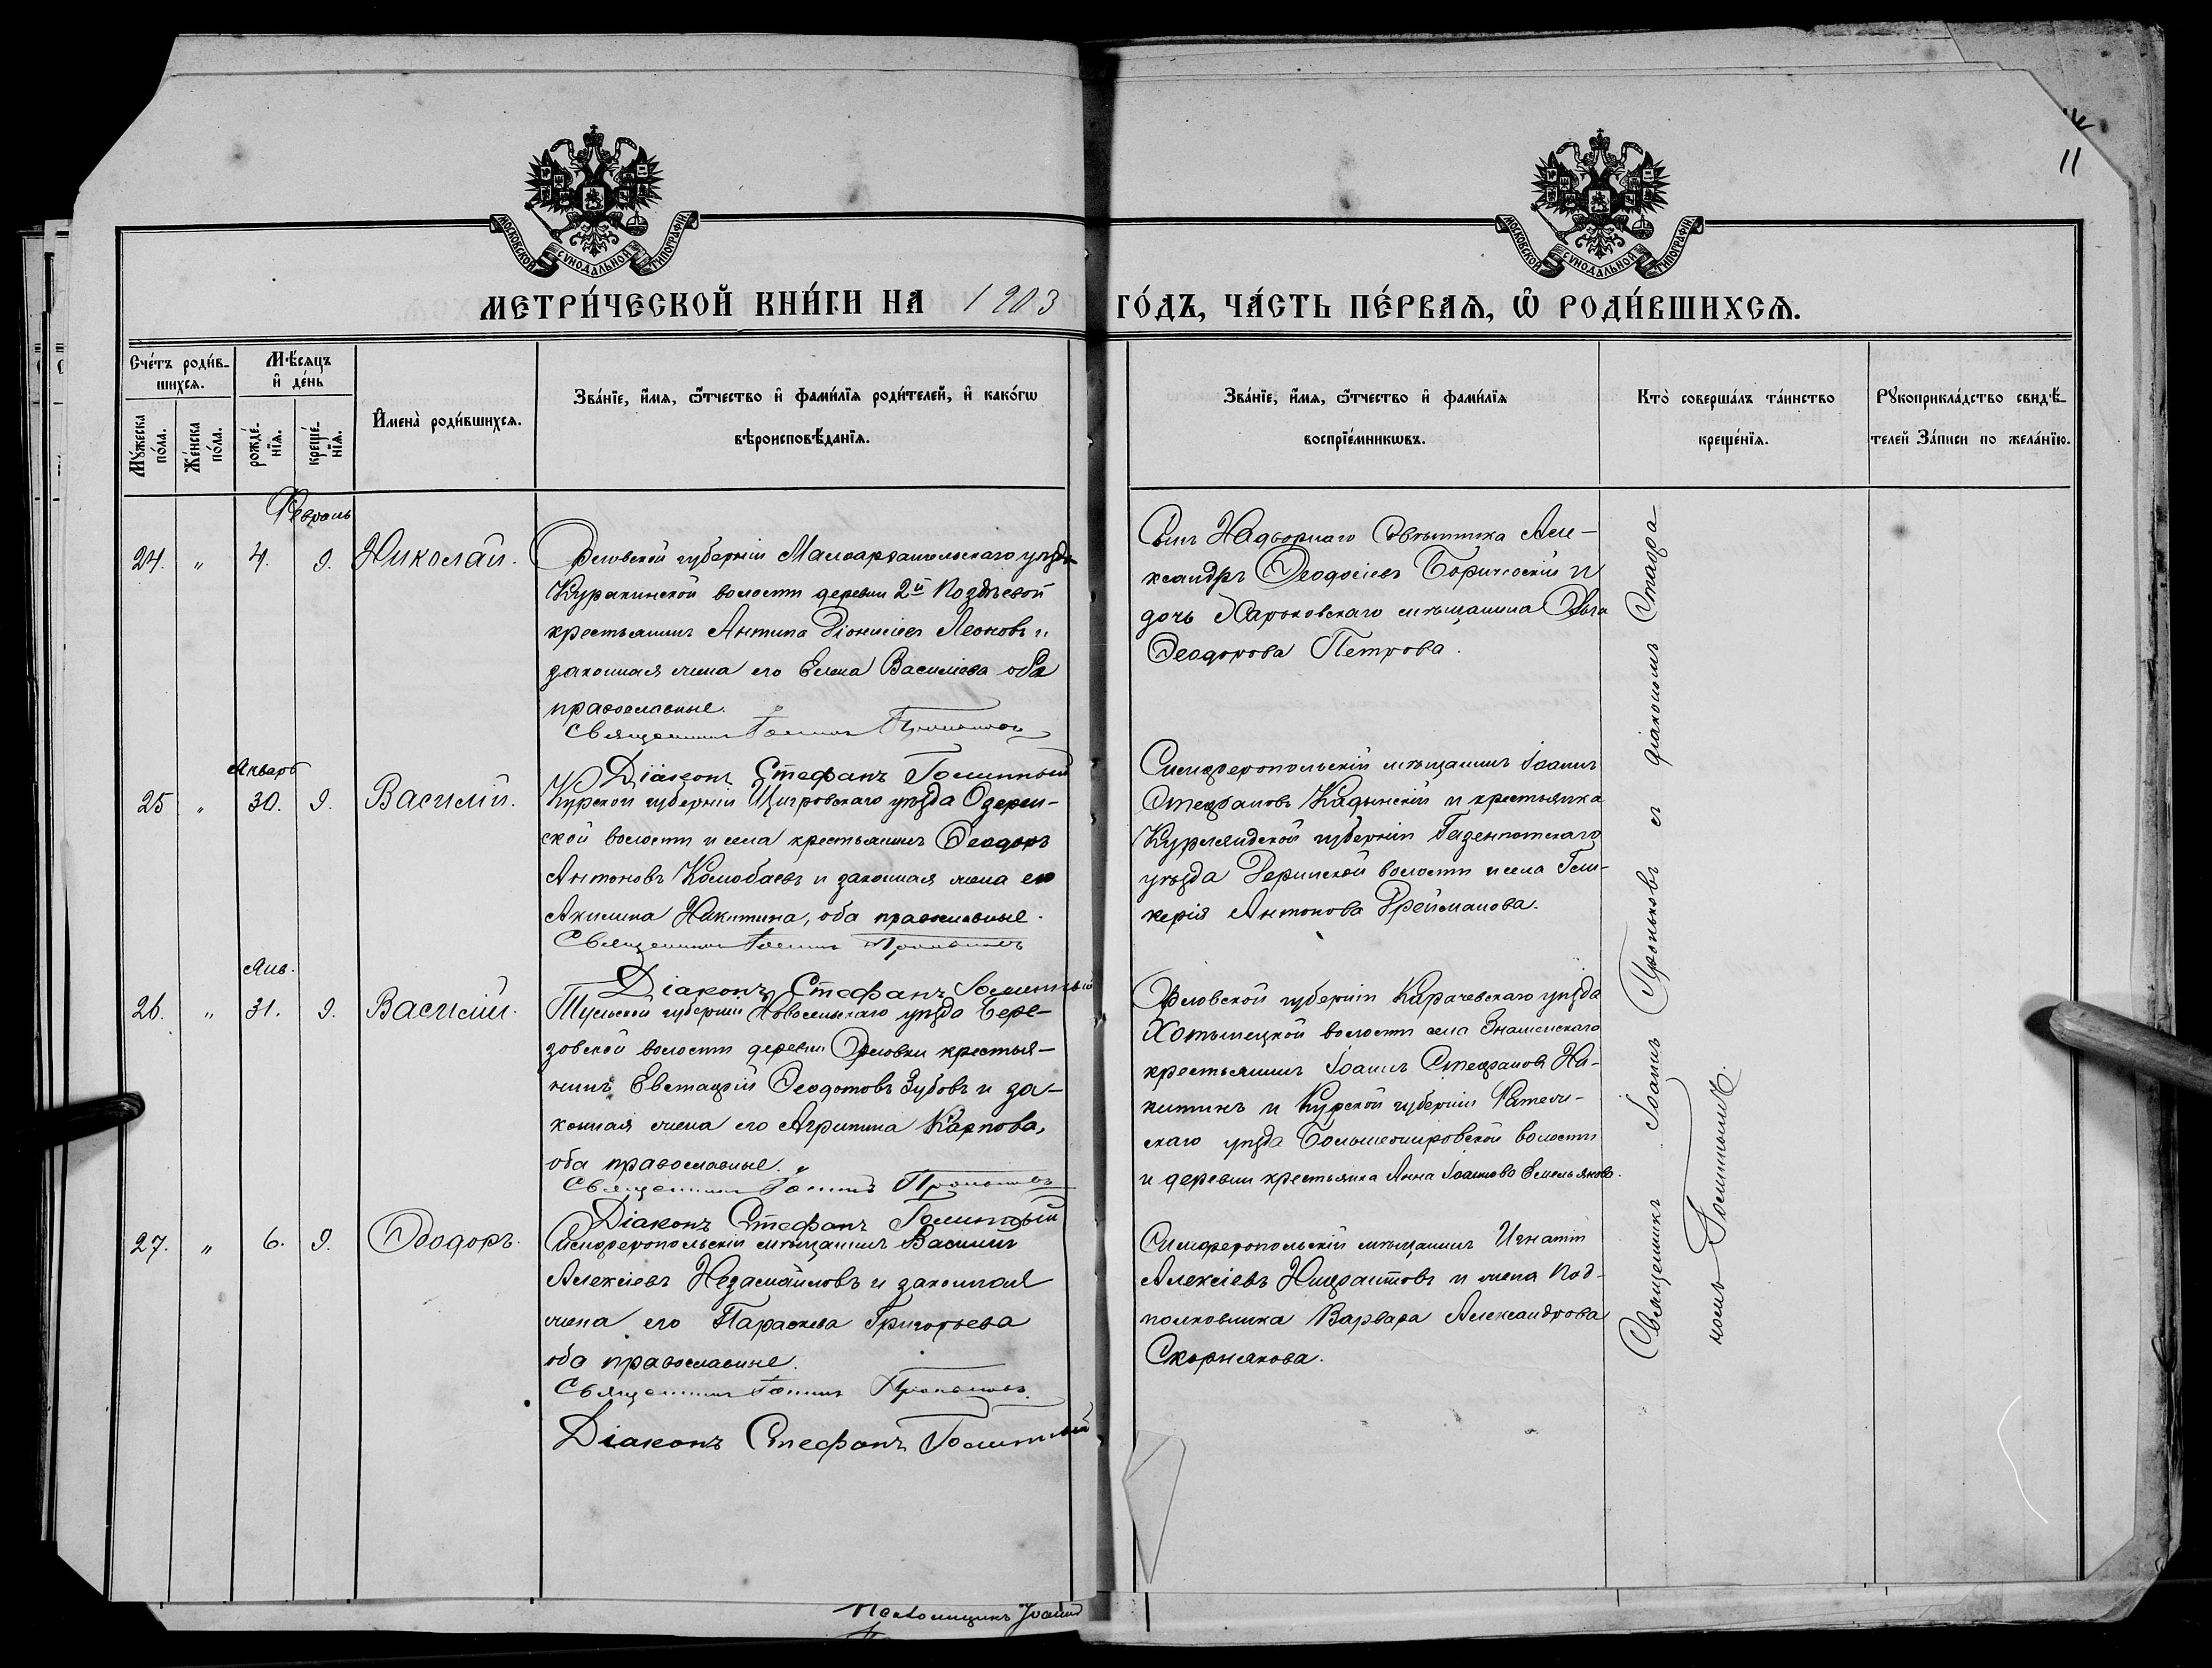 11
МОСКОВСКОЙ СУНОДАЛЬНОЙ ТИПОГРАФІИ
МОСКОВСКОЙ СУНОДАЛЬНОЙ ТИПОГРАФІИ
МЕТРИ́ЧЕСКОЙ КНИ́ГИ НА 1903 ГО́ДЪ, ЧА́СТЬ ПЕ́РВАѦ, Ѡ҆ РОДИ́ВШИХСѦ.
Сче́тъ роди́в-
шихсѧ.
Мꙋ́жеска
по́ла.
Же́нска
по́ла.
Мѣ́сѧцъ
и҆ де́нь
рожде́-
нїѧ.
креще́-
нїѧ.
И҆мена̀ роди́вшихсѧ.
Зва́нїе, и҆́мѧ, ѻ҆́тчество и҆ фами́лїѧ роди́телей, и҆ како́гѡ
вѣроисповѣ́данїѧ.
Зва́нїе, и҆́мѧ, ѻ҆́тчество и҆ фами́лїѧ
воспрїе́мникѡвъ.
Кто̀ соверша́лъ та́инство
креще́нїѧ.
Рꙋкоприкла́дство свидѣ́-
телей За́писи по жела́нїю.
Февраль
24. " 4. 9. Николай.
Орловской губерніи Малоархангельскаго уѣзда
Куракинской волости деревни 2й Поздѣевой
крестьянинъ Антипа Діонисіевъ Леоновъ и
законная жена его Елена Василіева оба
православные.
Священникъ Іоаннъ
Діаконъ Стефанъ
Сынъ Надворнаго Совѣтника Але-
ксандръ Ѳеодосіевъ и
дочь Харьковскаго мѣщанина Ольга
Ѳеодорова Петрова.
Январь
25 " 30. 9. Василій.
Курской губерніи Щигровскаго уѣзда Озерен-
ской волости и села крестьянинъ Ѳеодоръ
Антоновъ Колобаевъ и законная жена его
Акилина Никитина, оба православные.
Священникъ Іоаннъ
Діаконъ Стефанъ
Симферопольскій мѣщанинъ Іоаннъ
Стефановъ Кадынскій и крестьянка
Курляндской губерніи Газенпотскаго
уѣзда волости и села Гли-
керія Антонова Фрейманова.
Янв.
26. " 31. 9. Василій.
Тульской губерніи Новосильскаго уѣзда Бере-
зовской волости деревни Орловки крестья-
нинъ Евстафій Ѳеодотовъ Зубовъ и за-
конная жена его Агрипина Карпова,
оба православные.
Священникъ Іоаннъ
Діаконъ Стефанъ
Орловской губерніи Карачевскаго уѣзда
Хотынецкой волости села Знаменскаго
крестьянинъ Іоаннъ Стефановъ Ни-
китинъ и Курской губерніи
скаго уѣзда волости
и деревни крестьянка Анна Іоаннова Емельянова.
27. " 6. 9. Ѳеодоръ.
Симферопольскій мѣщанинъ Василій
Алексіевъ Незамайловъ и законная
жена его Параскева Григорьева
оба православные.
Священникъ Іоаннъ
Діаконъ Стефанъ
Симферопольскій мѣщанинъ Игнатій
Алексіевъ и жена Под-
полковника Варвара Александрова
Скорнякова.
Священникъ Іоаннъ съ діакономъ Стефа-
номъ
Псаломщикъ Іоаннъ